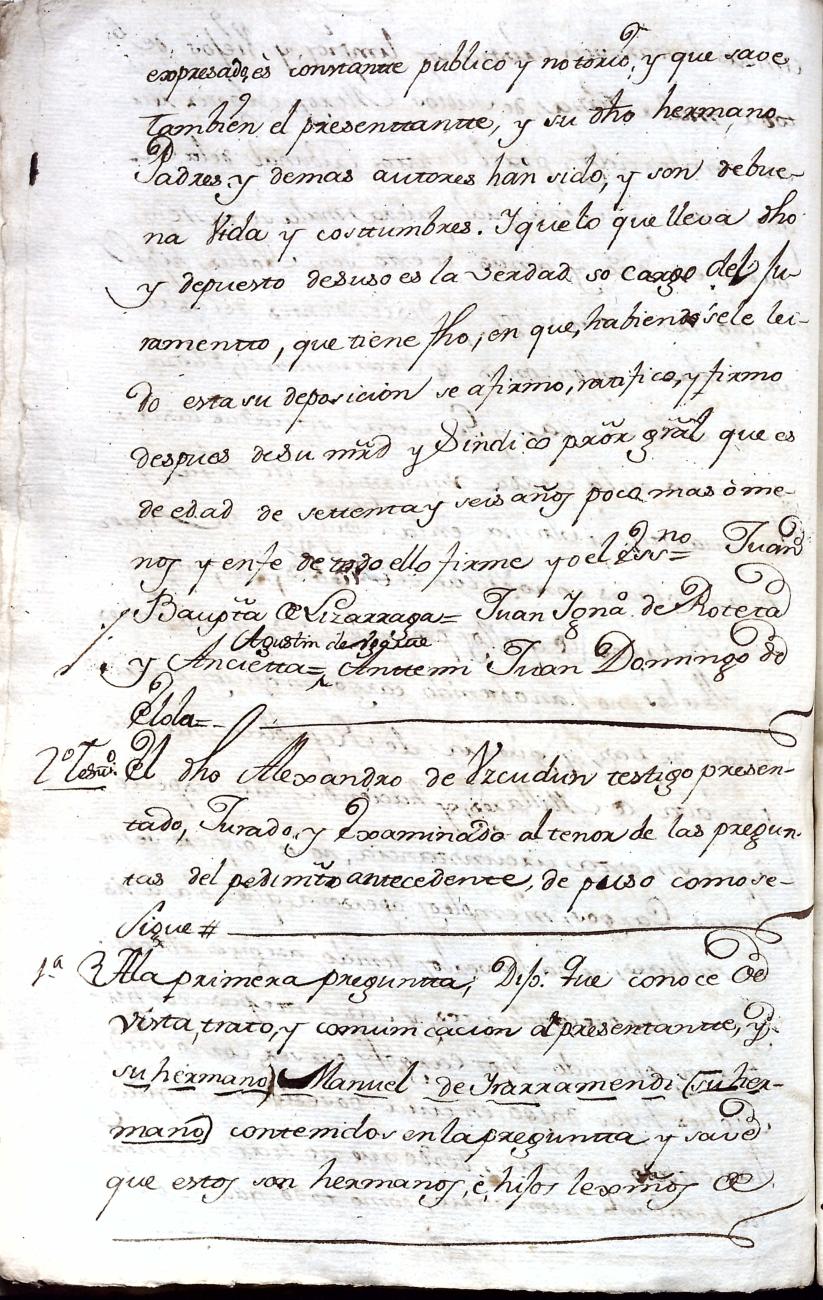 expresado, es constante publico y notorio, y que save
tambien el presenttantte, y su dho hermano
Padres, y demas autores han sido, y son de bue-
na Vida y costtumbres. Y que lo que lleva dho
y depuesto desuso es la verdad so cargo del ju-
ramentto, que tiene fho, en que, habiendosele lei-
do esta su deposicion se afirmo, ratifico, y firmo
despues de su mrd y Sindico prõr grãl que es
de edad de settenta y seis años poco mas ò me-
nos y en fe de todo ello firme yo el Essno = Juan
Baupta de Lizarraga = Juan Igno. de Roteta
Agustin de
y Ancietta = Anttemi Juan Domingo de
Elola =
2º Testigo. El dho Alexandro de Uzcudun testigo presen-
tado, Jurado, y Examinado al tenor de las pregun-
tas del pedimto antecedente, depuso como se-
sigue #
1ª A la primera preguntta, Dijo: Que conoce de
vista, trato, y comunicacion al presentantte, y
su hermano) Manuel de Irarramendi (su her-
mano) contenidos en la preguntta y save
que estos son hermanos, é hijos lexmos de